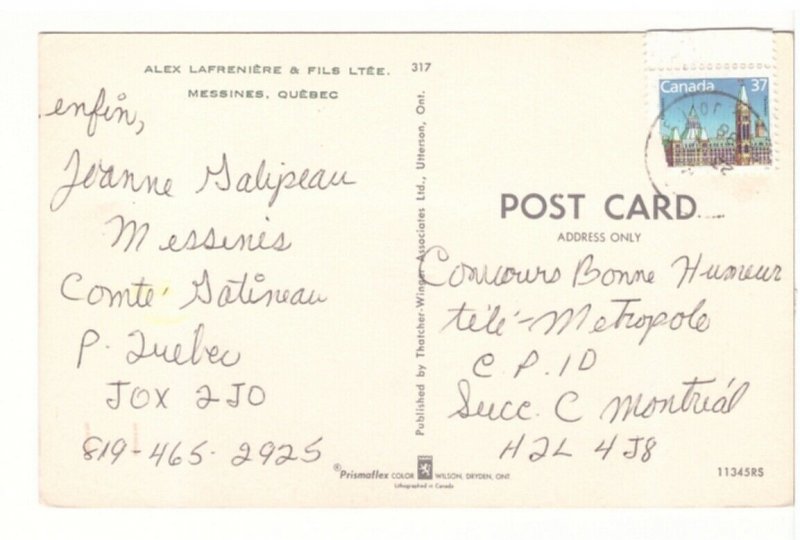 ALEX LAFRENIÈRE & FILS LTÉE. 317
MESSINES, QUÉBEC
enfin,
Jeanne Galipeau
Messines
Comté Gatineau
P. Quebec
JOX 2JO
819-465-2925
Published by Thatcher-Winger Associates Ltd., Utterson, Ont.
Canada 37
POST CARD
ADDRESS ONLY
Concours Bonne Humeur
télé-Metropole
C.P. 1D
Succ. C Montréal
H2L 4J8
Prismaflex COLOR WILSON, DRYDEN, ONT
Lithographed in Canada
11345RS